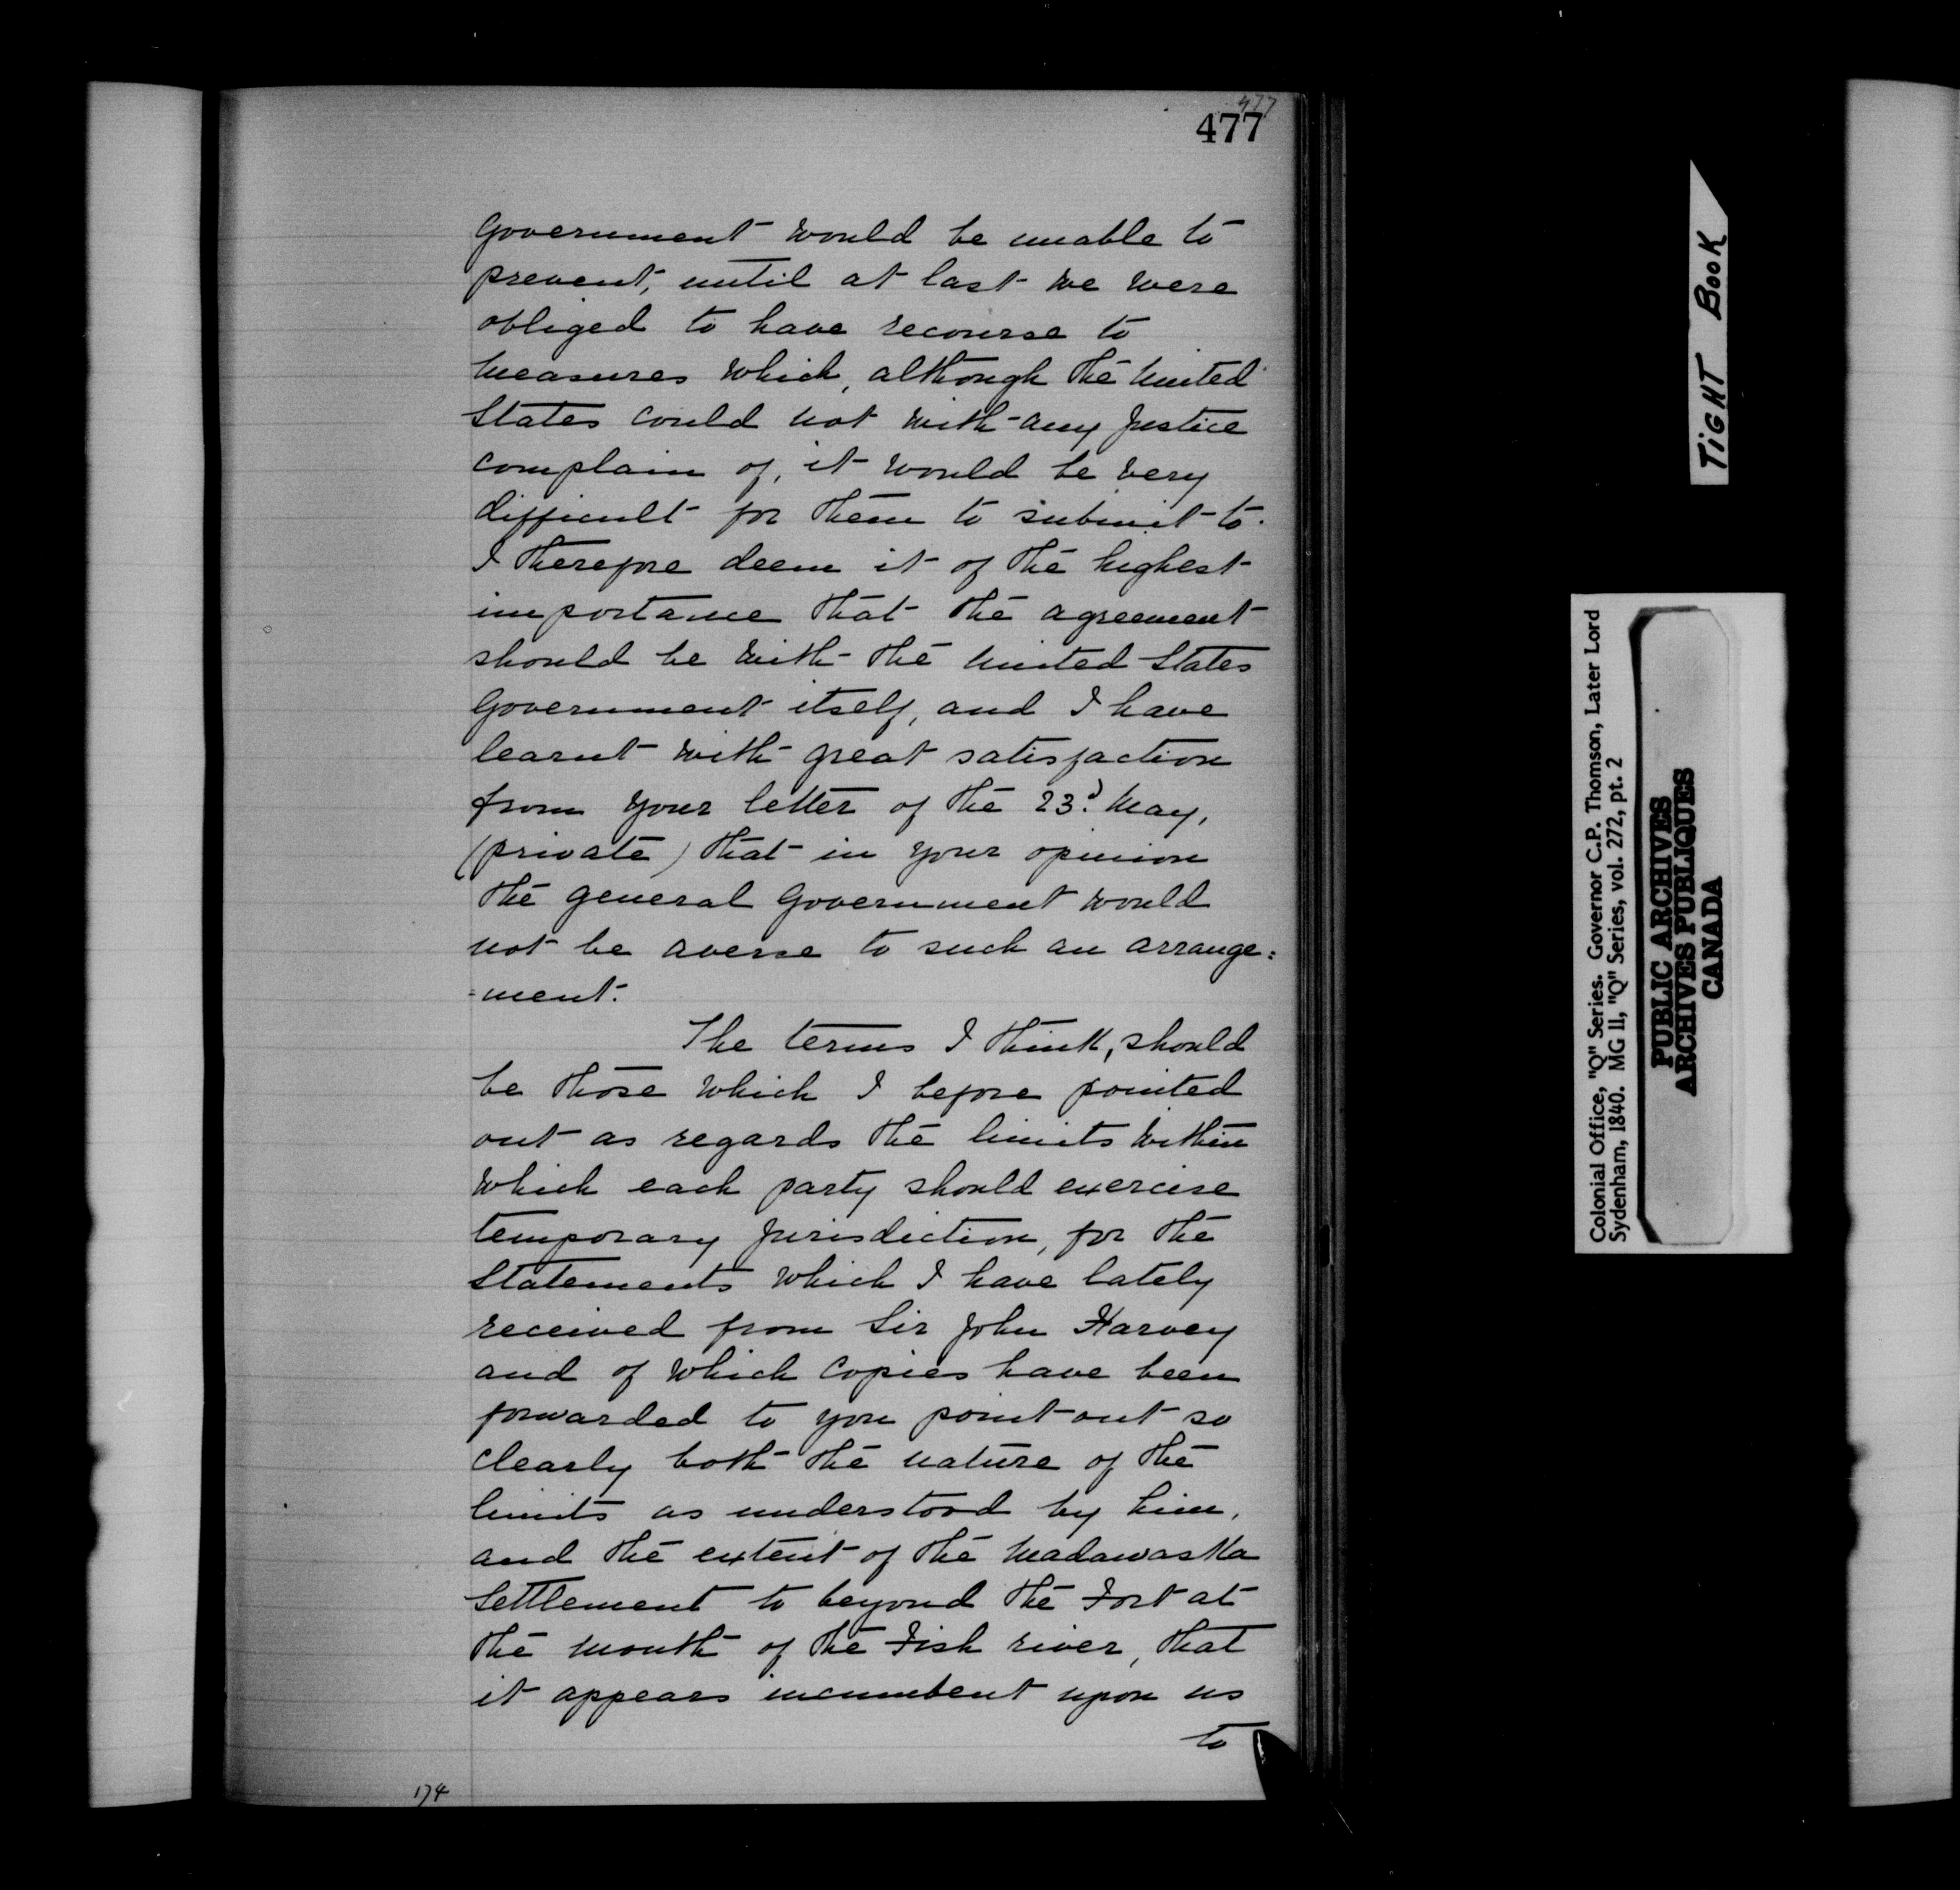 477
477
Government would be unable to
prevent, until at last we were
obliged to have recourse to
measures which, although the United
States could not with any justice
complain of, it would be very
difficult for them to submit to.
I therefore deem it of the highest
importance that the agreement
should be with the United States
Government itself, and I have
learnt with great satisfaction
from your letter of the 23d. May,
(private) that in your opinion
the general Government would
not be averse to such an arrange=
=ment.
The terms I think, should
be those which I before pointed
out as regards the limits within
which each party should exercise
temporary jurisdiction, for the
Statements which I have lately
received from Sir John Harvey
and of which copies have been
forwarded to you point out so
clearly both the nature of the
limits as understood by him,
and the extent of the Madawaska
Settlement to beyond the Fort at
the mouth of the Fish river, that
it appears incumbent upon us
to
174
TIGHT BOOK
Colonial Office, "Q" Series. Governor C.P. Thomson, Later Lord
Sydenham, 1840. MG 11, "Q" Series, vol. 272, pt. 2
PUBLIC ARCHIVES
ARCHIVES PUBLIQUES
CANADA